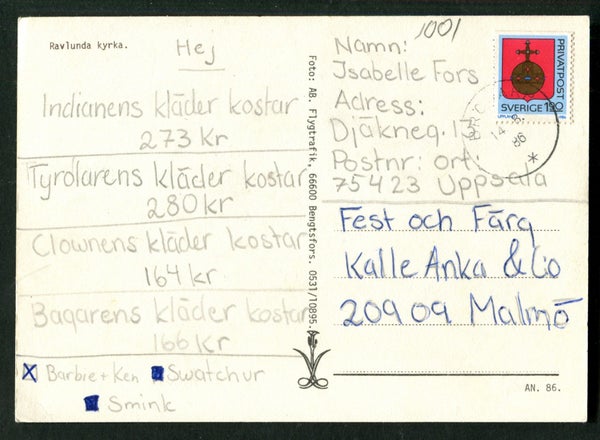 Ravlunda kyrka.
Hej
Indianens kläder kostar
273 Kr
Tyrolarens kläder kostar
280 kr
Clownens kläder kostar
164 kr
Bagarens kläder kostar
166 kr
Barbie + Ken Swatchur
Smink
Foto: AB. Flygtrafik, 66600 Bengtsfors. 0531/10895.
1001
Namn:
Isabelle Fors
Adress:
Djäkneg. 13
Postnr: ort:
75423 Uppsala
PRIVATPOST
SVERIGE 1.90
14 8.
86
Fest och Färg
Kalle Anka & Co
20909 Malmö
AN. 86.